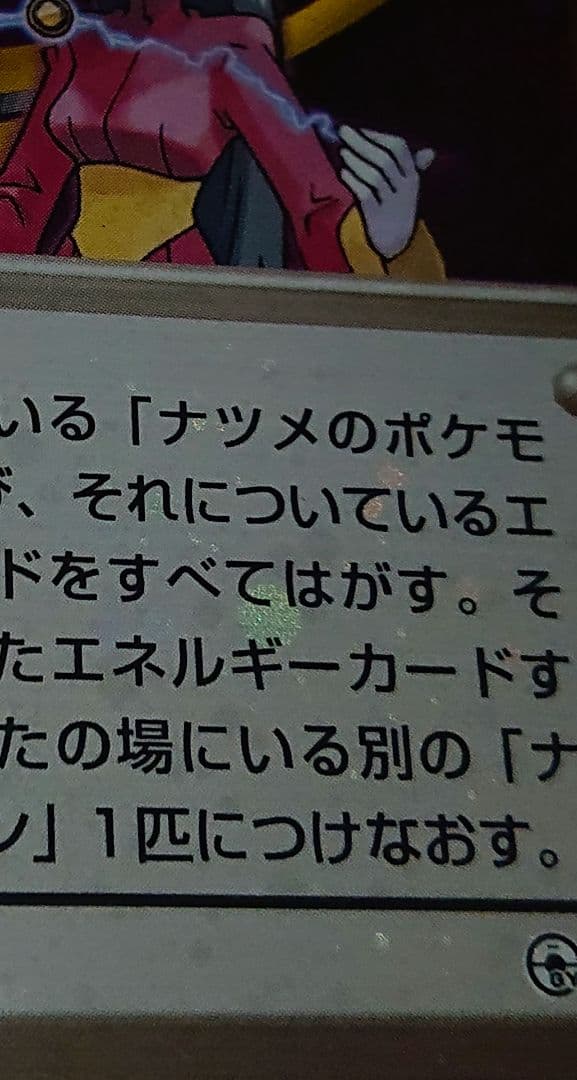 いる「ナツメのポケモ
、それについているエ
ドをすべてはがす。そ
たエネルギーカードす
たの場にいる別の「ナ
ン」1匹につけなおす。
GY